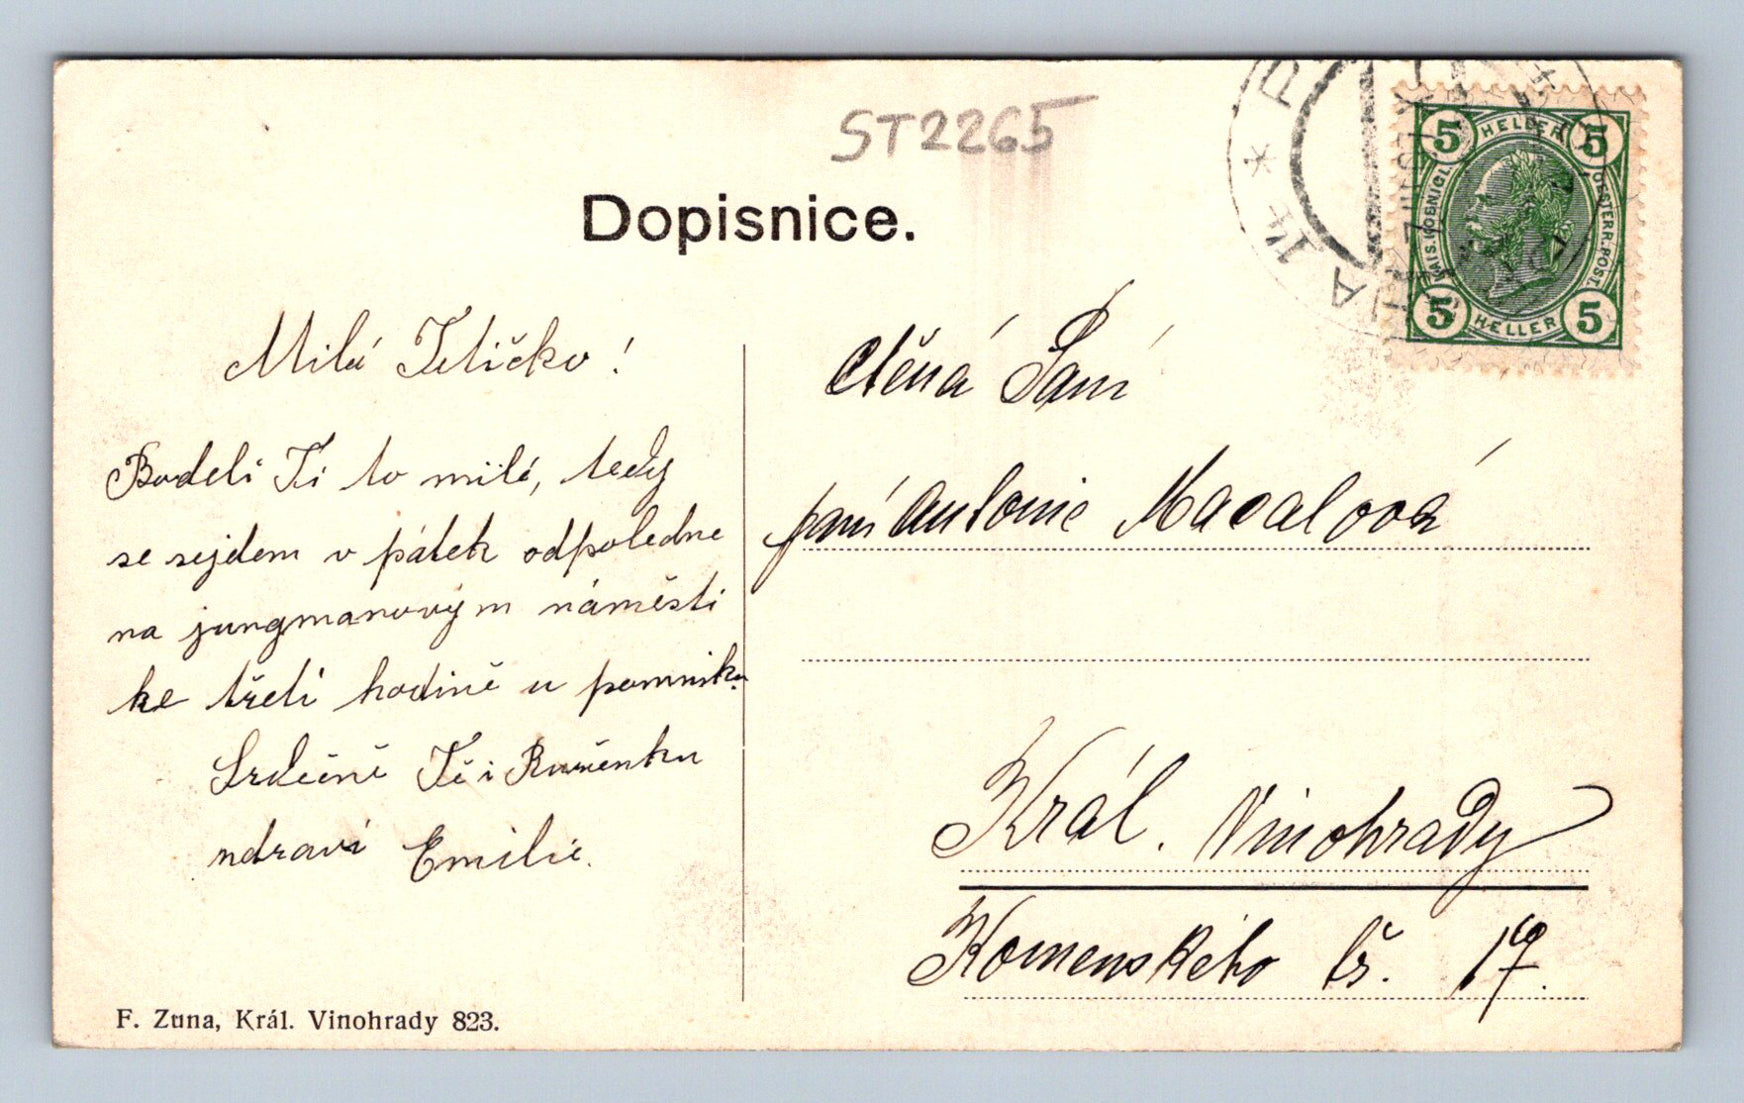 ST2265
Dopisnice.
5 HELLER 5
KAIS. KÖNIGL.
OESTERR. POST.
5 HELLER 5
Milá Tetičko!
Budeli Ti to milé, tedy
se sejdem v pátek odpoledne
na jungmanovým náměsti
ke třetí hodině u pomniku.
Srdečně Tě i Ruženku
zdraví Emilie.
F. Zuna, Král. Vinohrady 823.
Ctěná Paní
paní Antonie Macalová
Král. Vinohrady
Komenského tř. 17.